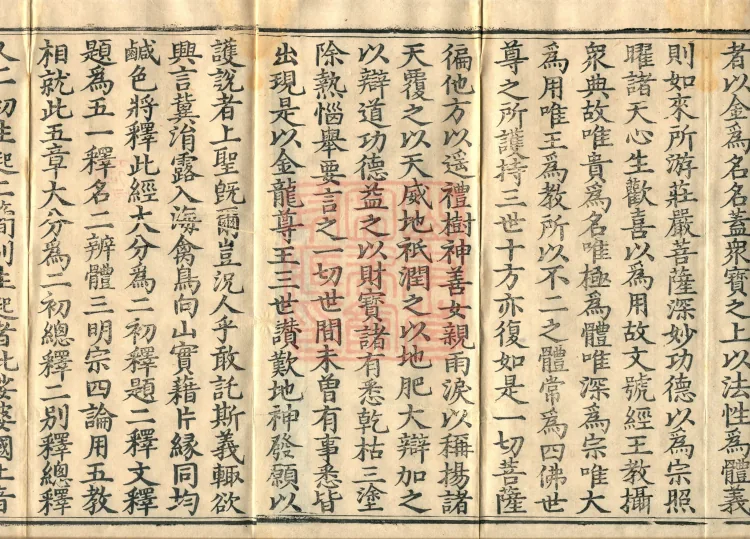 者以金為名名蓋衆寶之上以法性為體義
則如來所游莊嚴菩薩深妙功德以為宗照
曜諸天心生歡喜以為用故文號經王教攝
衆典故唯貴為名唯極為體唯深為宗唯大
為用唯王為教所以不二之體常為四佛世
尊之所護持三世十方亦復如是一切菩薩
徧他方以遥禮樹神善女親雨淚以稱揚諸
天覆之以天威地祇潤之以地肥大辯加之
以辯道功德益之以財寶諸有悉乾枯三塗
除熱惱舉要言之一切世間未曾有事悉皆
出現是以金龍尊王三世讃歎地神發願以
護說者上聖既爾豈況人乎敢託斯義輙欲
興言冀涓露入海禽鳥向山實藉片緣同均
鹹色將釋此經大分為二初釋題二釋文釋
題為五一釋名二辨體三明宗四論用五教
相就此五章大分為二初總釋二別釋總釋
又二初生起二簡別生起者此娑婆國土音